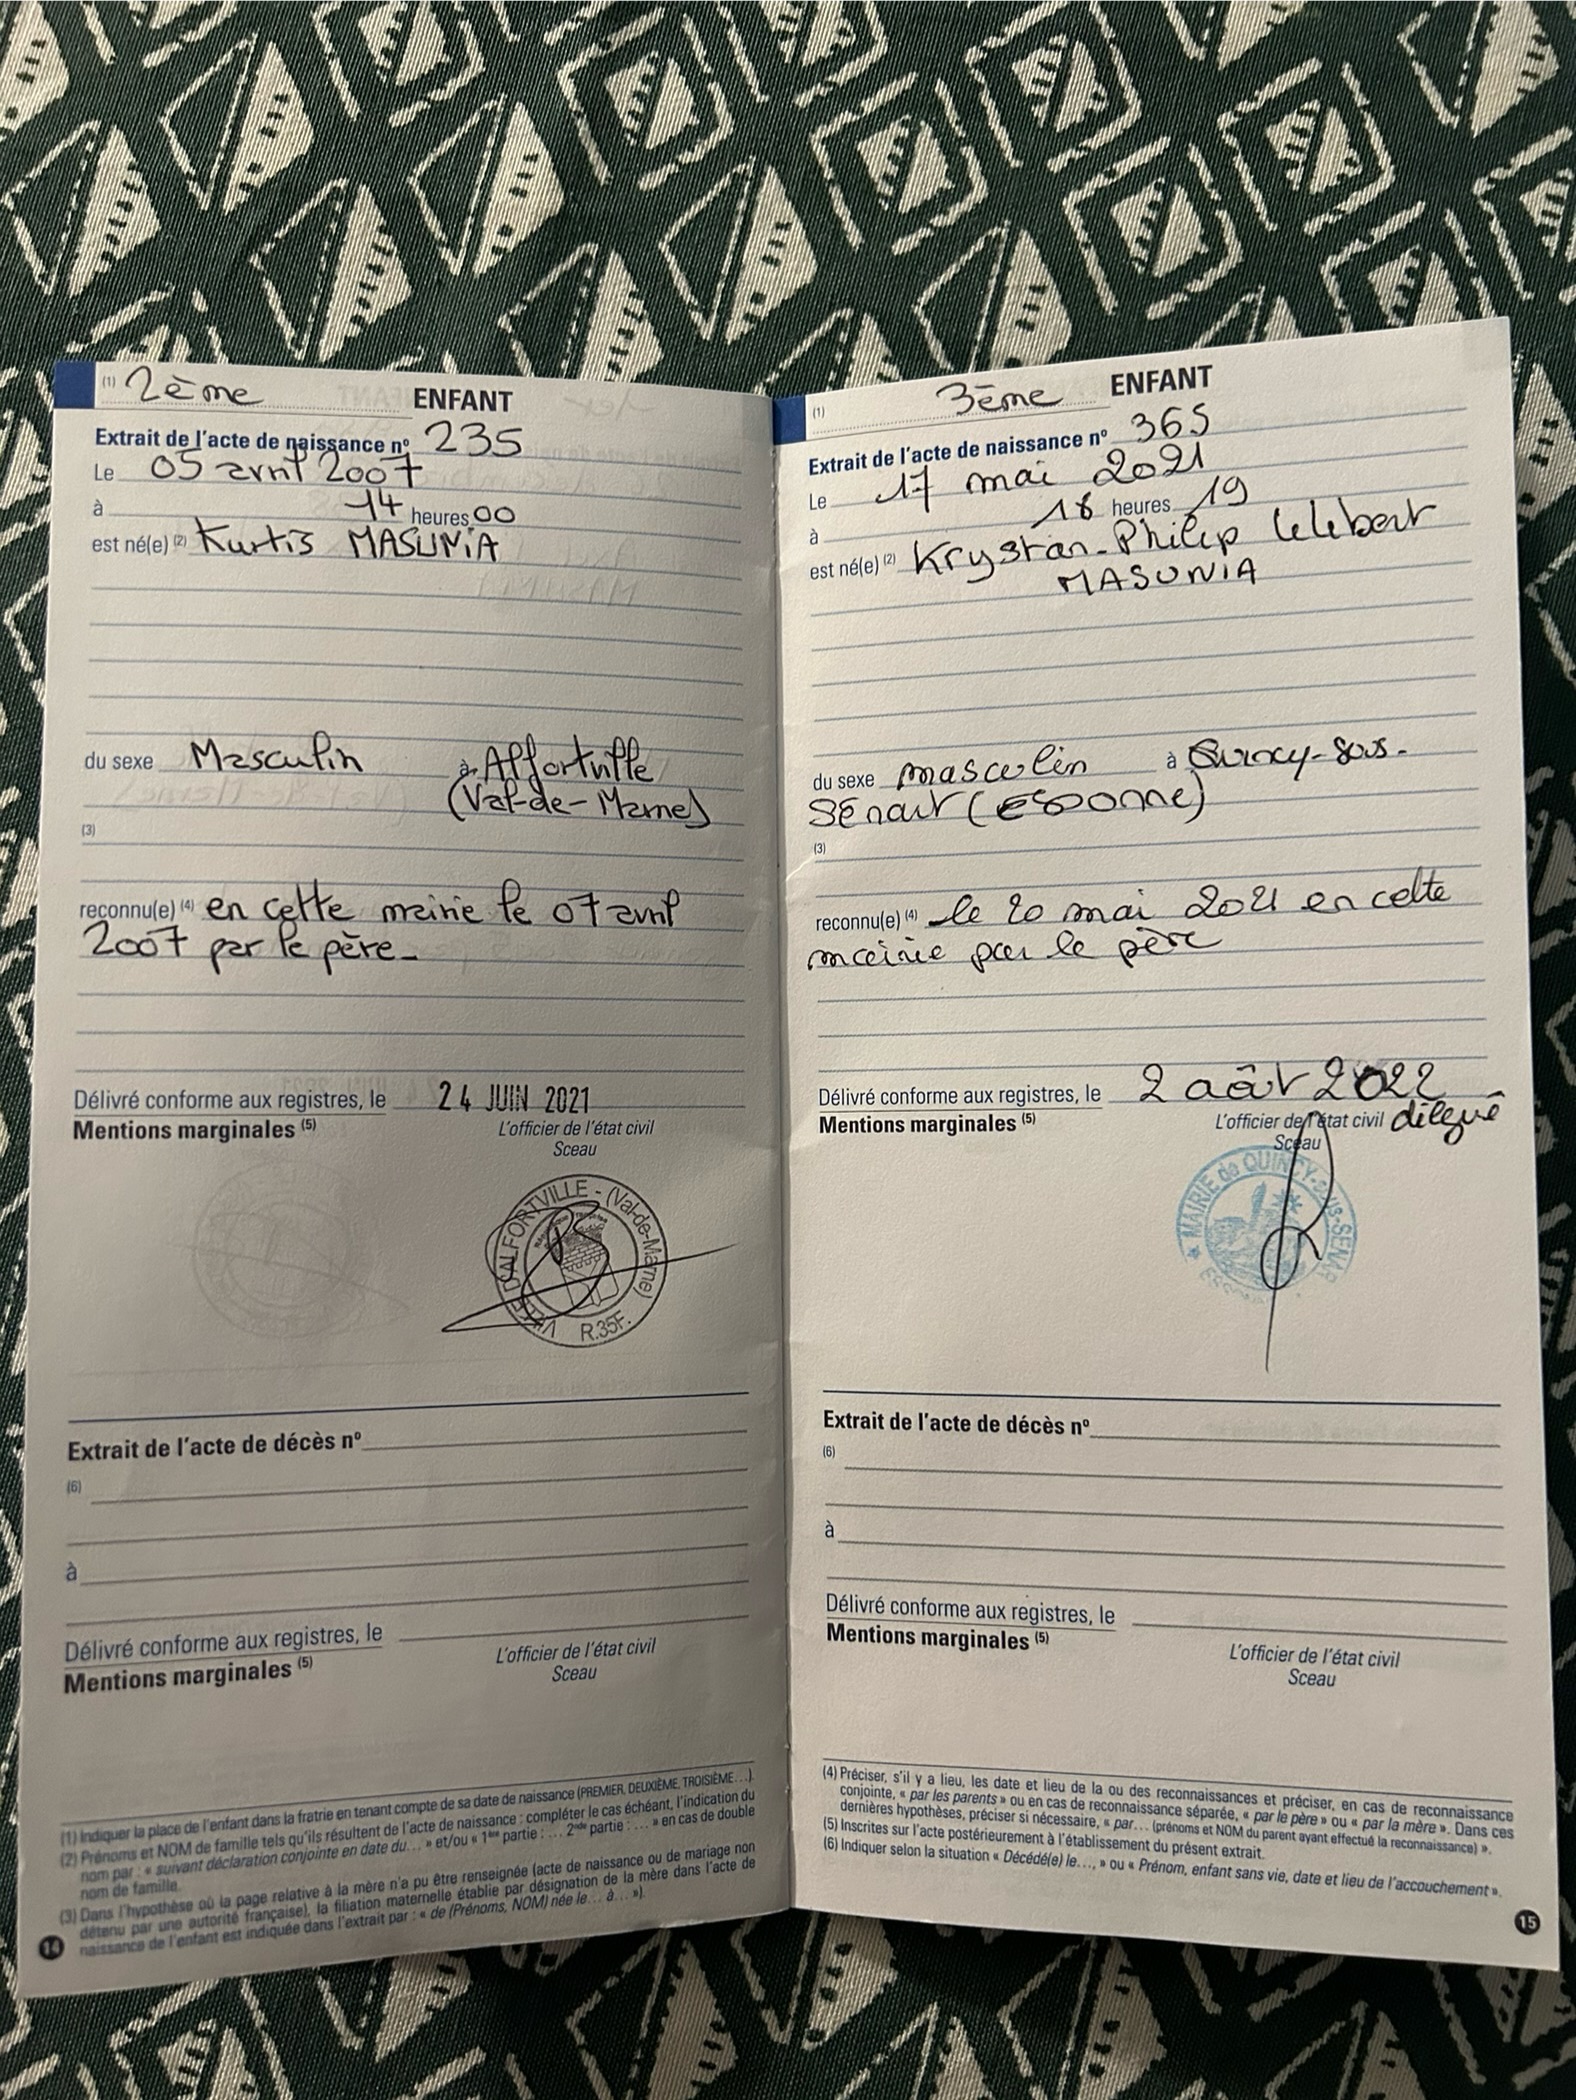 (1) 2ème ENFANT
Extrait de l'acte de naissance nº 235
Le 05 avril 2007
à 14 heures 00
est né(e) (2) Kurtis MASUNIA
du sexe Masculin à Alfortville
(Val-de-Marne)
(3)
reconnu(e) (4) en cette mairie le 07 avril
2007 par le père_
Délivré conforme aux registres, le 24 JUIN 2021
Mentions marginales (5)
L'officier de l'état civil
Sceau
VILLE D'ALFORTVILLE - (Val-de-Marne)
R.35F.
Extrait de l'acte de décès nº
(6)
à
Délivré conforme aux registres, le
Mentions marginales (5)
L'officier de l'état civil
Sceau
(1) Indiquer la place de l'enfant dans la fratrie en tenant compte de sa date de naissance (PREMIER, DEUXIÈME, TROISIÈME…).
(2) Prénoms et NOM de famille tels qu'ils résultent de l'acte de naissance : compléter le cas échéant, l'indication du
nom par : « suivant déclaration conjointe en date du… » et/ou « 1ère partie : … 2nde partie : … » en cas de double
nom de famille.
(3) Dans l'hypothèse où la page relative à la mère n'a pu être renseignée (acte de naissance ou de mariage non
détenu par une autorité française), la filiation maternelle établie par désignation de la mère dans l'acte de
naissance de l'enfant est indiquée dans l'extrait par : « de (Prénoms, NOM) née le… à… »).
14
(1) 3ème ENFANT
Extrait de l'acte de naissance nº 365
Le 17 mai 2021
à 18 heures 19
est né(e) (2) Krystan-Philip
MASUNIA
du sexe masculin à Quincy-sous-
Sénart (Essonne)
(3)
reconnu(e) (4) le 20 mai 2021 en cette
mairie par le père
Délivré conforme aux registres, le 2 août 2022
Mentions marginales (5)
L'officier de l'état civil délégué
Sceau
MAIRIE de QUINCY-SOUS-SENART
Extrait de l'acte de décès nº
(6)
à
Délivré conforme aux registres, le
Mentions marginales (5)
L'officier de l'état civil
Sceau
(4) Préciser, s'il y a lieu, les date et lieu de la ou des reconnaissances et préciser, en cas de reconnaissance
conjointe, « par les parents » ou en cas de reconnaissance séparée, « par le père » ou « par la mère ». Dans ces
dernières hypothèses, préciser si nécessaire, « par… (prénoms et NOM du parent ayant effectué la reconnaissance) ».
(5) Inscrites sur l'acte postérieurement à l'établissement du présent extrait.
(6) Indiquer selon la situation « Décédé(e) le…, » ou « Prénom, enfant sans vie, date et lieu de l'accouchement ».
15